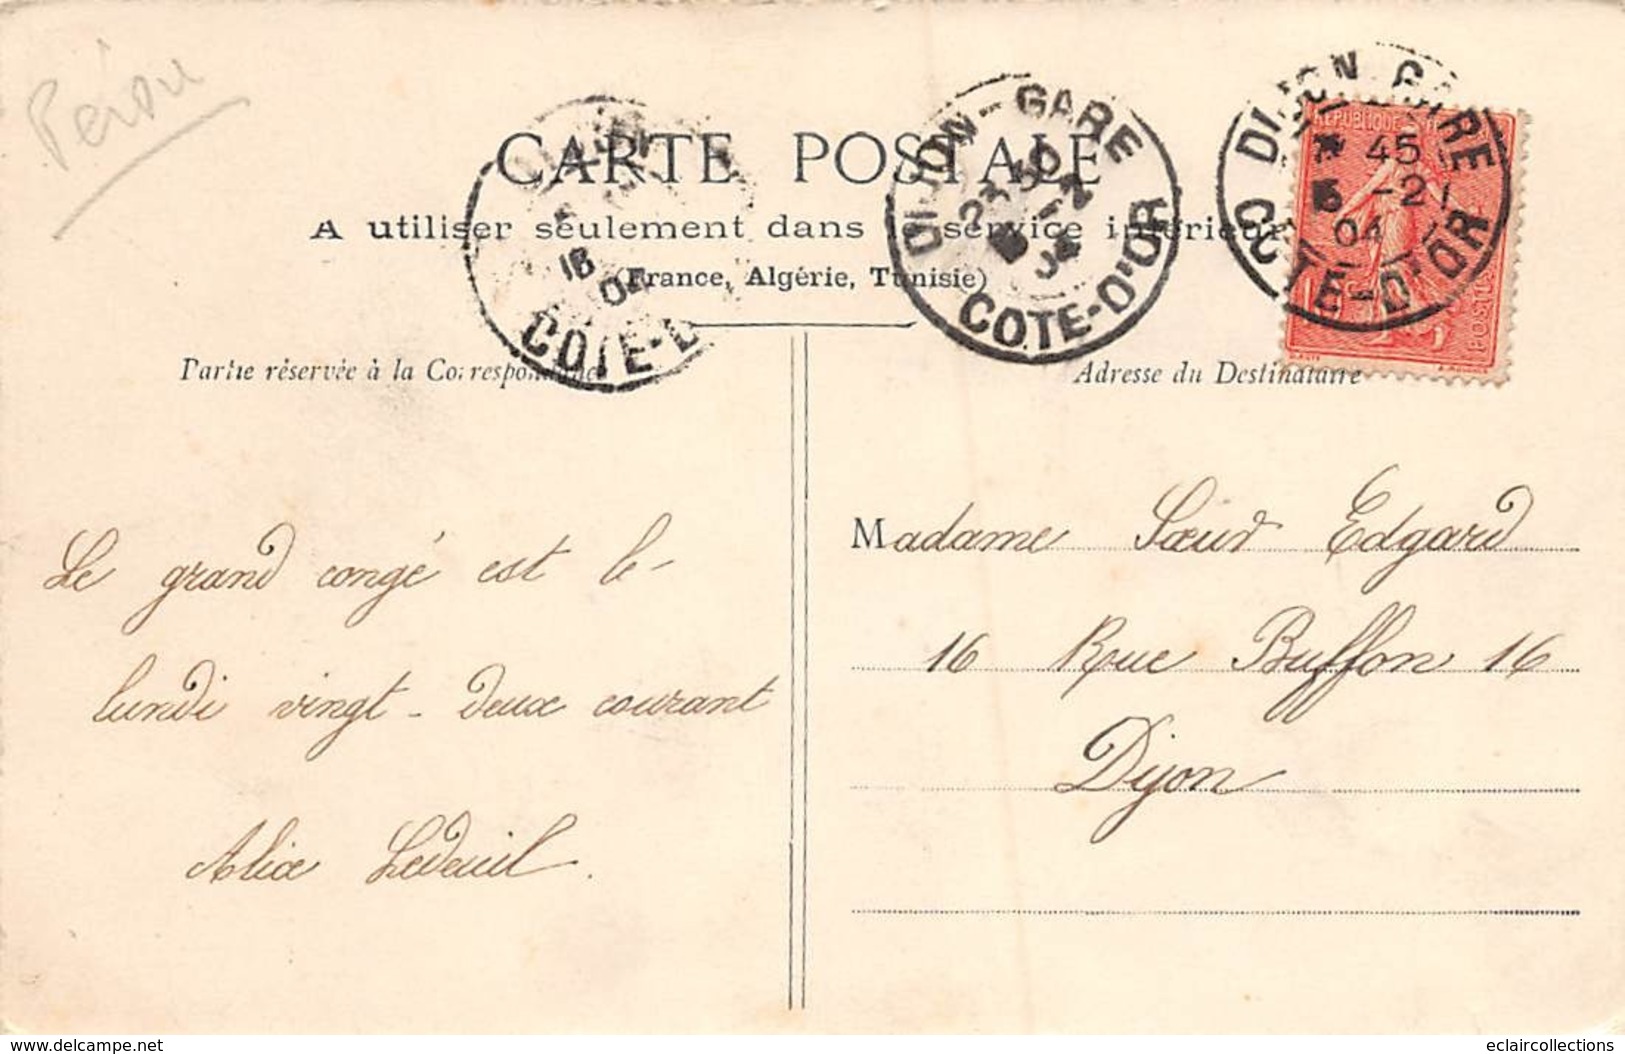 Pérou
CARTE POSTALE
A utiliser seulement dans le service intérieur
(France, Algérie, Tunisie)
Partie réservée à la Correspondance
Adresse du Destinataire
COTE-D
18
04
DIJON-GARE
23 50
-2
04
COTE-D'OR
DIJON GARE
45
-2
04
COTE-D'OR
REPUBLIQUE
POSTES
Le grand congé est le
lundi vingt-deux courant
Alix Ledeuil.
Madame Sœur Edgard
16 Rue Buffon 16
Dijon
www.delcampe.net
eclaircollections